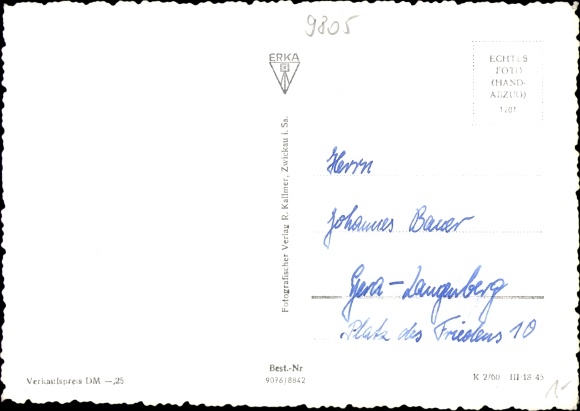 9805
ERKA
ECHTES
FOTO
(HAND-
ABZUG)
1201
Fotografischer Verlag R. Kallmer, Zwickau i. Sa.
Herrn
Johannes Bauer
Gera-Langenberg
Platz des Friedens 10
Verkaufspreis DM —,25
Best.-Nr
9076/8842
K 2/60 III-18-45
1-